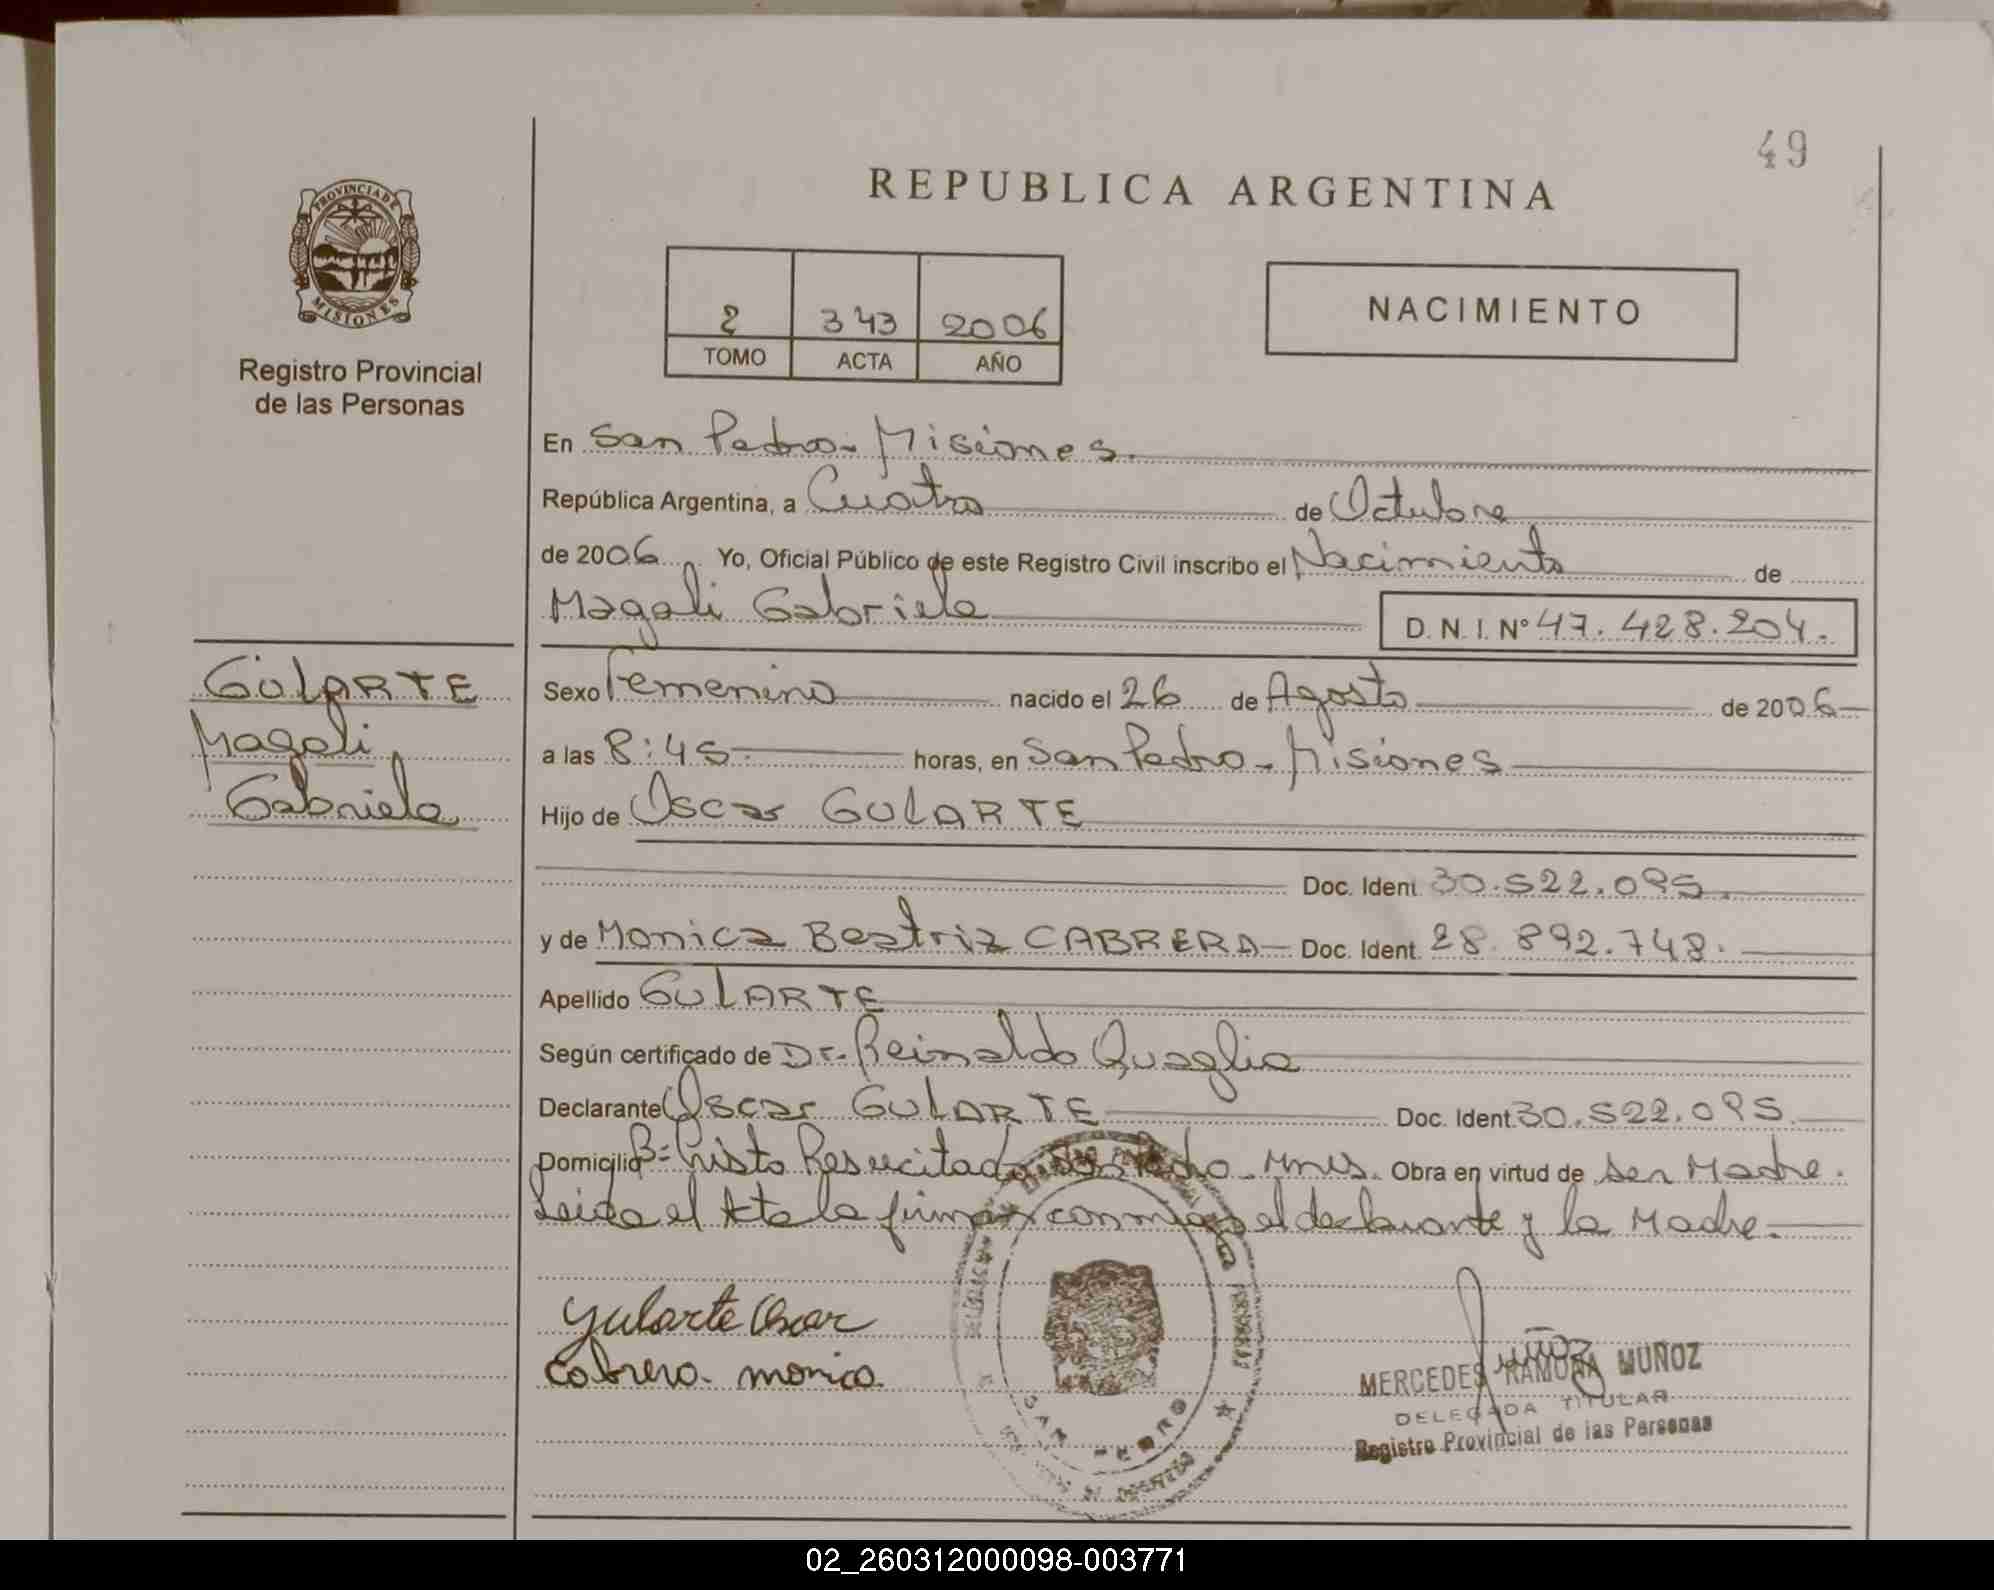 49
REPUBLICA ARGENTINA
PROVINCIA DE
MISIONES
Registro Provincial
de las Personas
2 343 2006
TOMO ACTA AÑO
NACIMIENTO
En San Pedro - Misiones.
República Argentina, a Cuatro de Octubre
de 2006 Yo, Oficial Público de este Registro Civil inscribo el Nacimiento de
Magali Gabriela D. N. I. Nº 47.428.204.
GULARTE
Magali
Gabriela
Sexo Femenino nacido el 26 de Agosto de 2006
a las 8:45 horas, en San Pedro - Misiones
Hijo de Oscar GULARTE
Doc. Ident. 30.522.095.
y de Monica Beatriz CABRERA Doc. Ident. 28.892.748.
Apellido GULARTE
Según certificado de Dr. Reinaldo Quaglia
Declarante Oscar GULARTE Doc. Ident. 30.522.095.
Domicilio Bº Cristo Resucitado San Pedro - Mnes. Obra en virtud de ser Madre.
Leida el Acta la firman conmigo el declarante y la Madre.
Gularte Oscar
Cabrera monica.
SAN PEDRO
Muñoz
MERCEDES RAMONA MUÑOZ
DELEGADA TITULAR
Registro Provincial de las Personas
02_260312000098-003771